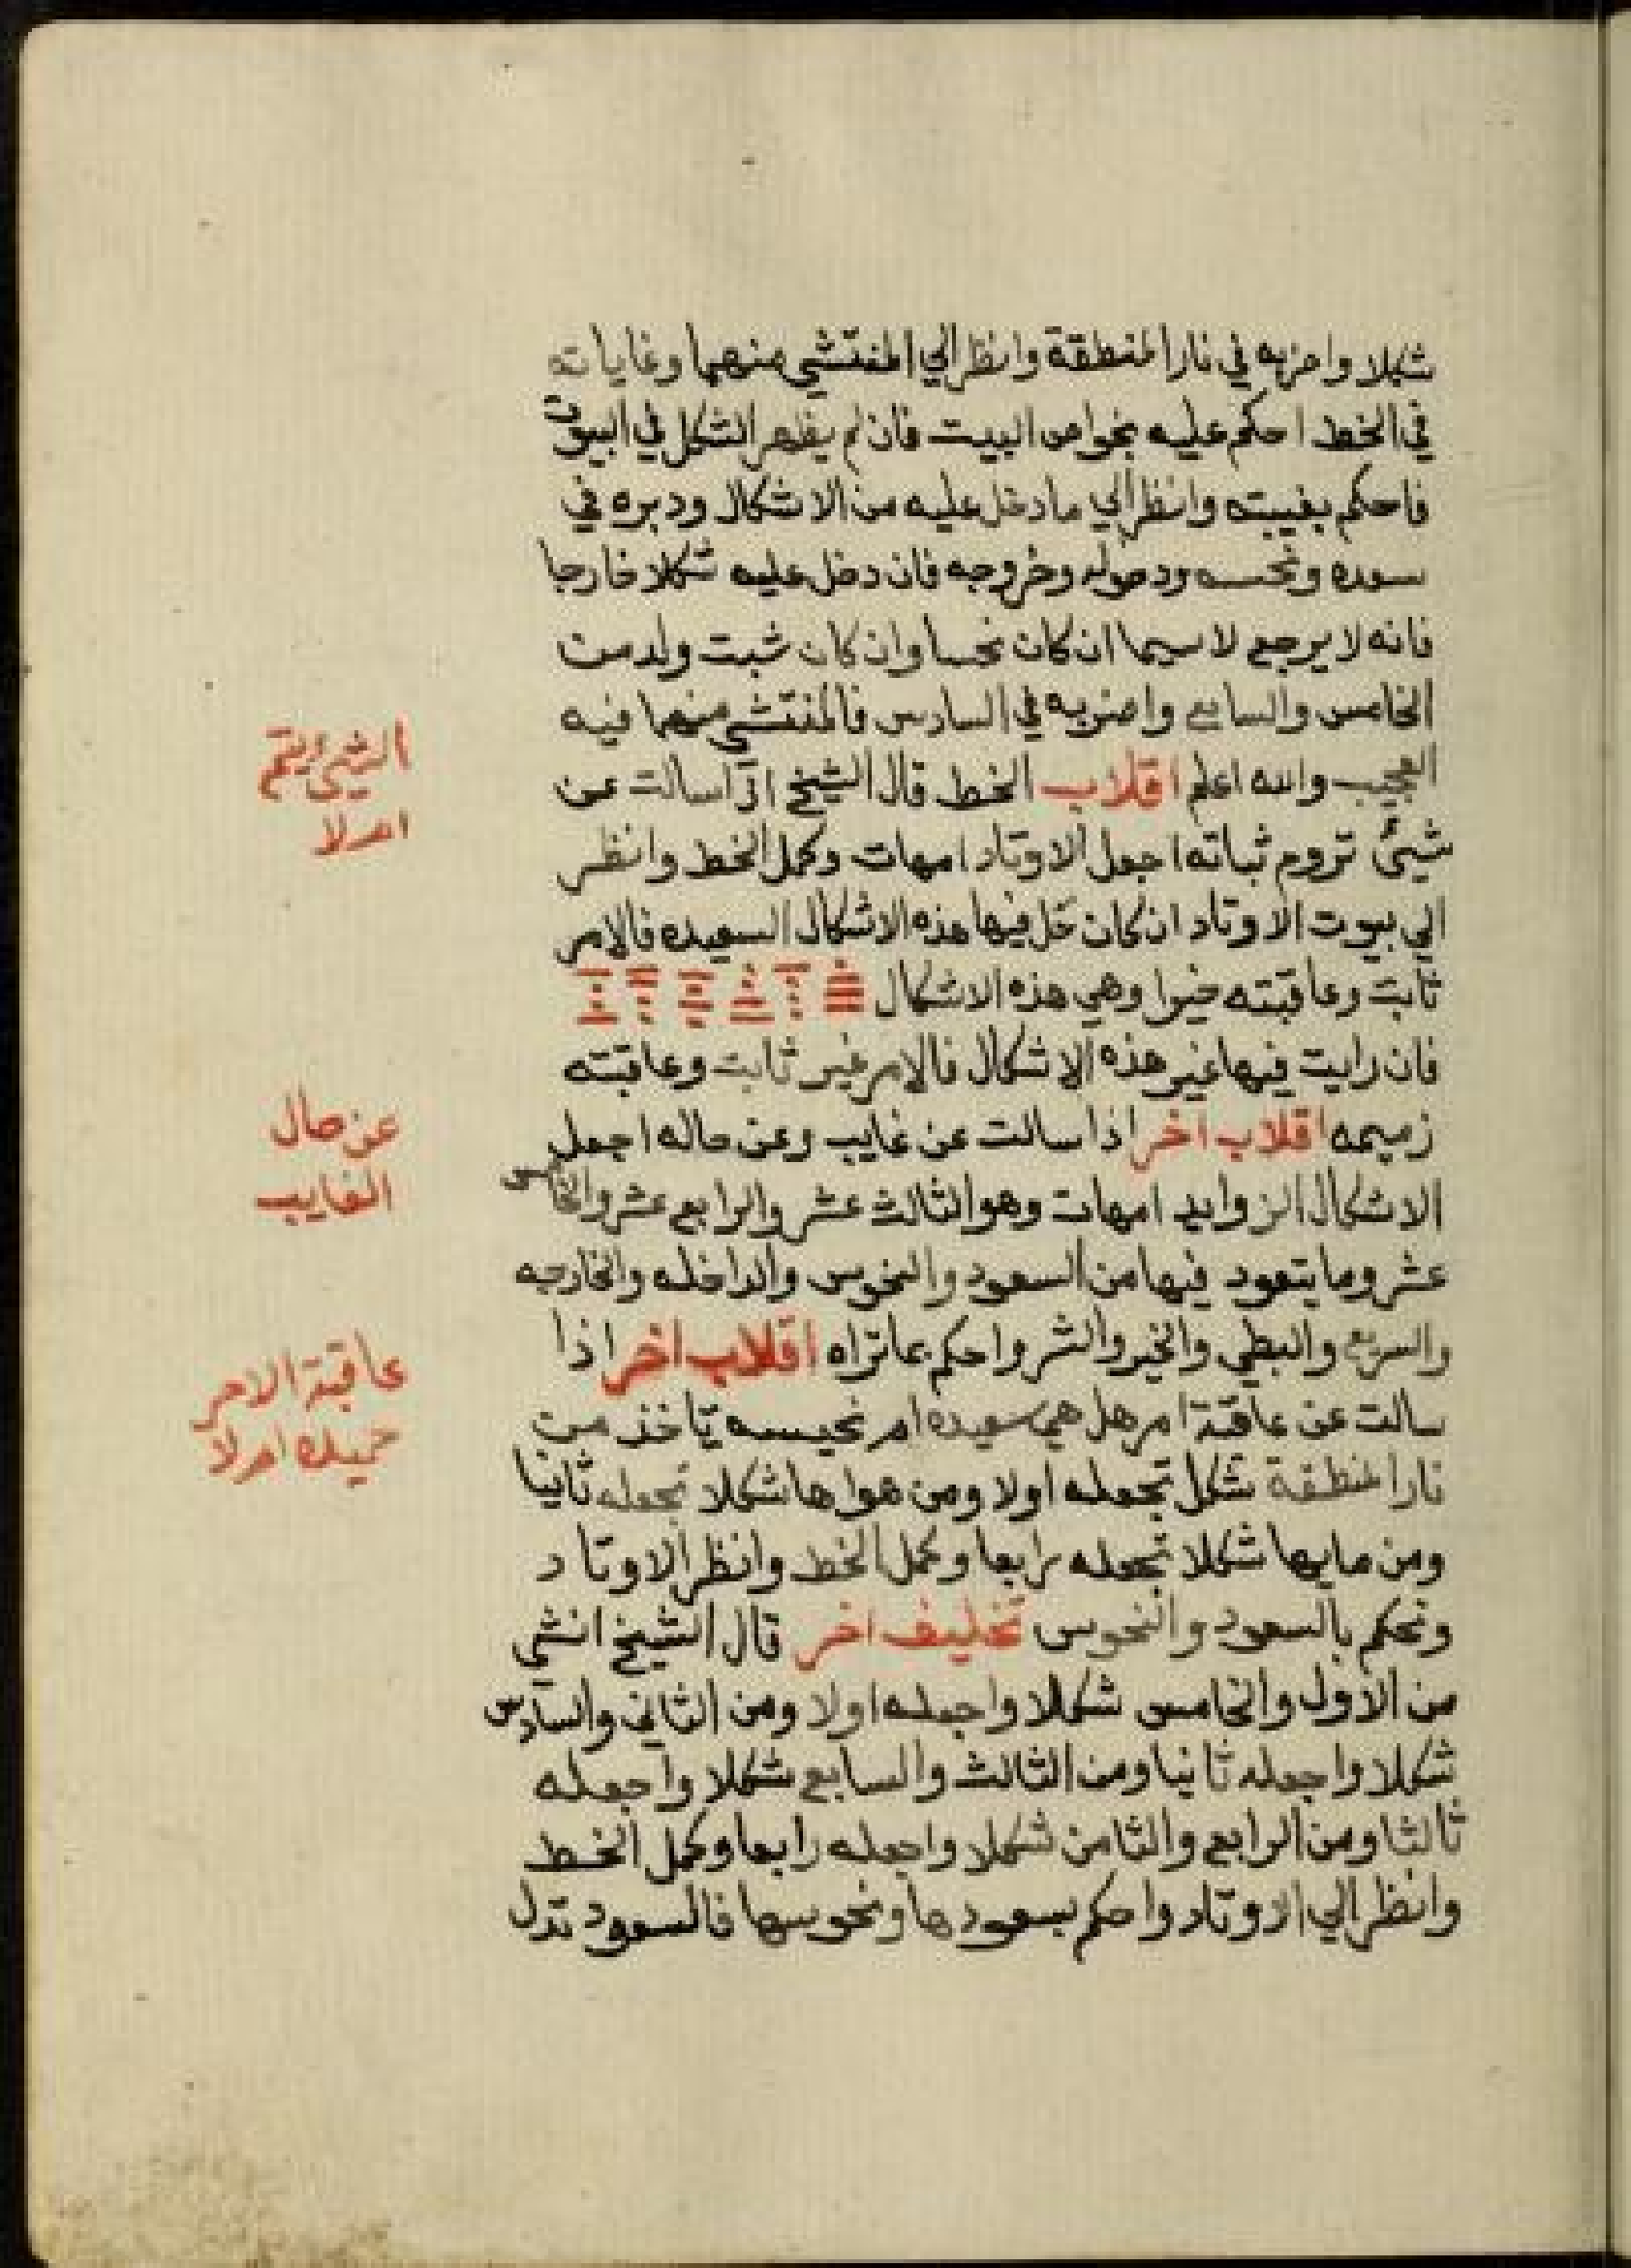 شكلا واضربه في نار المنطقة وانظر الي المنتشي منهما وغاياته
في الخط احكم عليه بخواص البيت فان لم يظهر الشكل في البيوت
فاحكم بغيبته وانظر الي ما دخل عليه من الاشكال ودبره في
سعده ونحسه ودخوله وخروجه فان دخل عليه شكلا خارجا
فانه لا يرجع لا سيما ان كان نحسا وان كان ولد من
الخامس والسابع واضربه في السادس فالمنتشي منهما فيه
العجيب والله اعلم اقلاب الخط قال الشيخ اذا سالت عن
شيئ تروم ثباته اجعل الاوتاد امهات وكمل الخط وانظر
الي بيوت الاوتاد ان كان حل فيها هذه الاشكال السعيده فالامر
ثابت وعاقبته خيرا وهي هذه الاشكال
فان رايت فيها غير هذه الاشكال فالامر غير ثابت وعاقبته
زميمه اقلاب اخر اذا سالت عن غايب وعن حاله اجعل
الاشكال الزوايد امهات وهو الثالث عشر والرابع عشر والخامس
عشر وما يتعود فيها من السعود والنحوس والداخله والخارجه
والسريع والبطي والخير والشر واحكم بما تراه اقلاب اخر اذا
سالت عن عاقبة امر هل هي سعيده ام نحيسه تاخذ من
نار المنطقة شكل تجعله اولا ومن هواها شكلا تجعله ثانيا
ومن مايها شكلا تجعله رابعا وكمل الخط وانظر الاوتاد
وتحكم بالسعود والنحوس تخليف اخر قال الشيخ انشي
من الاول والخامس شكلا واجعله اولا ومن الثاني والسادس
شكلا واجعله ثانيا ومن الثالث والسابع شكلا واجعله
ثالثا ومن الرابع والثامن شكلا واجعله رابعا وكمل الخط
وانظر الي الاوتاد واحكم بسعودها ونحوسها فالسعود تدل
الشيئ يتم
ام لا
عن حال
الغايب
عاقبة الامر
حميده ام لا